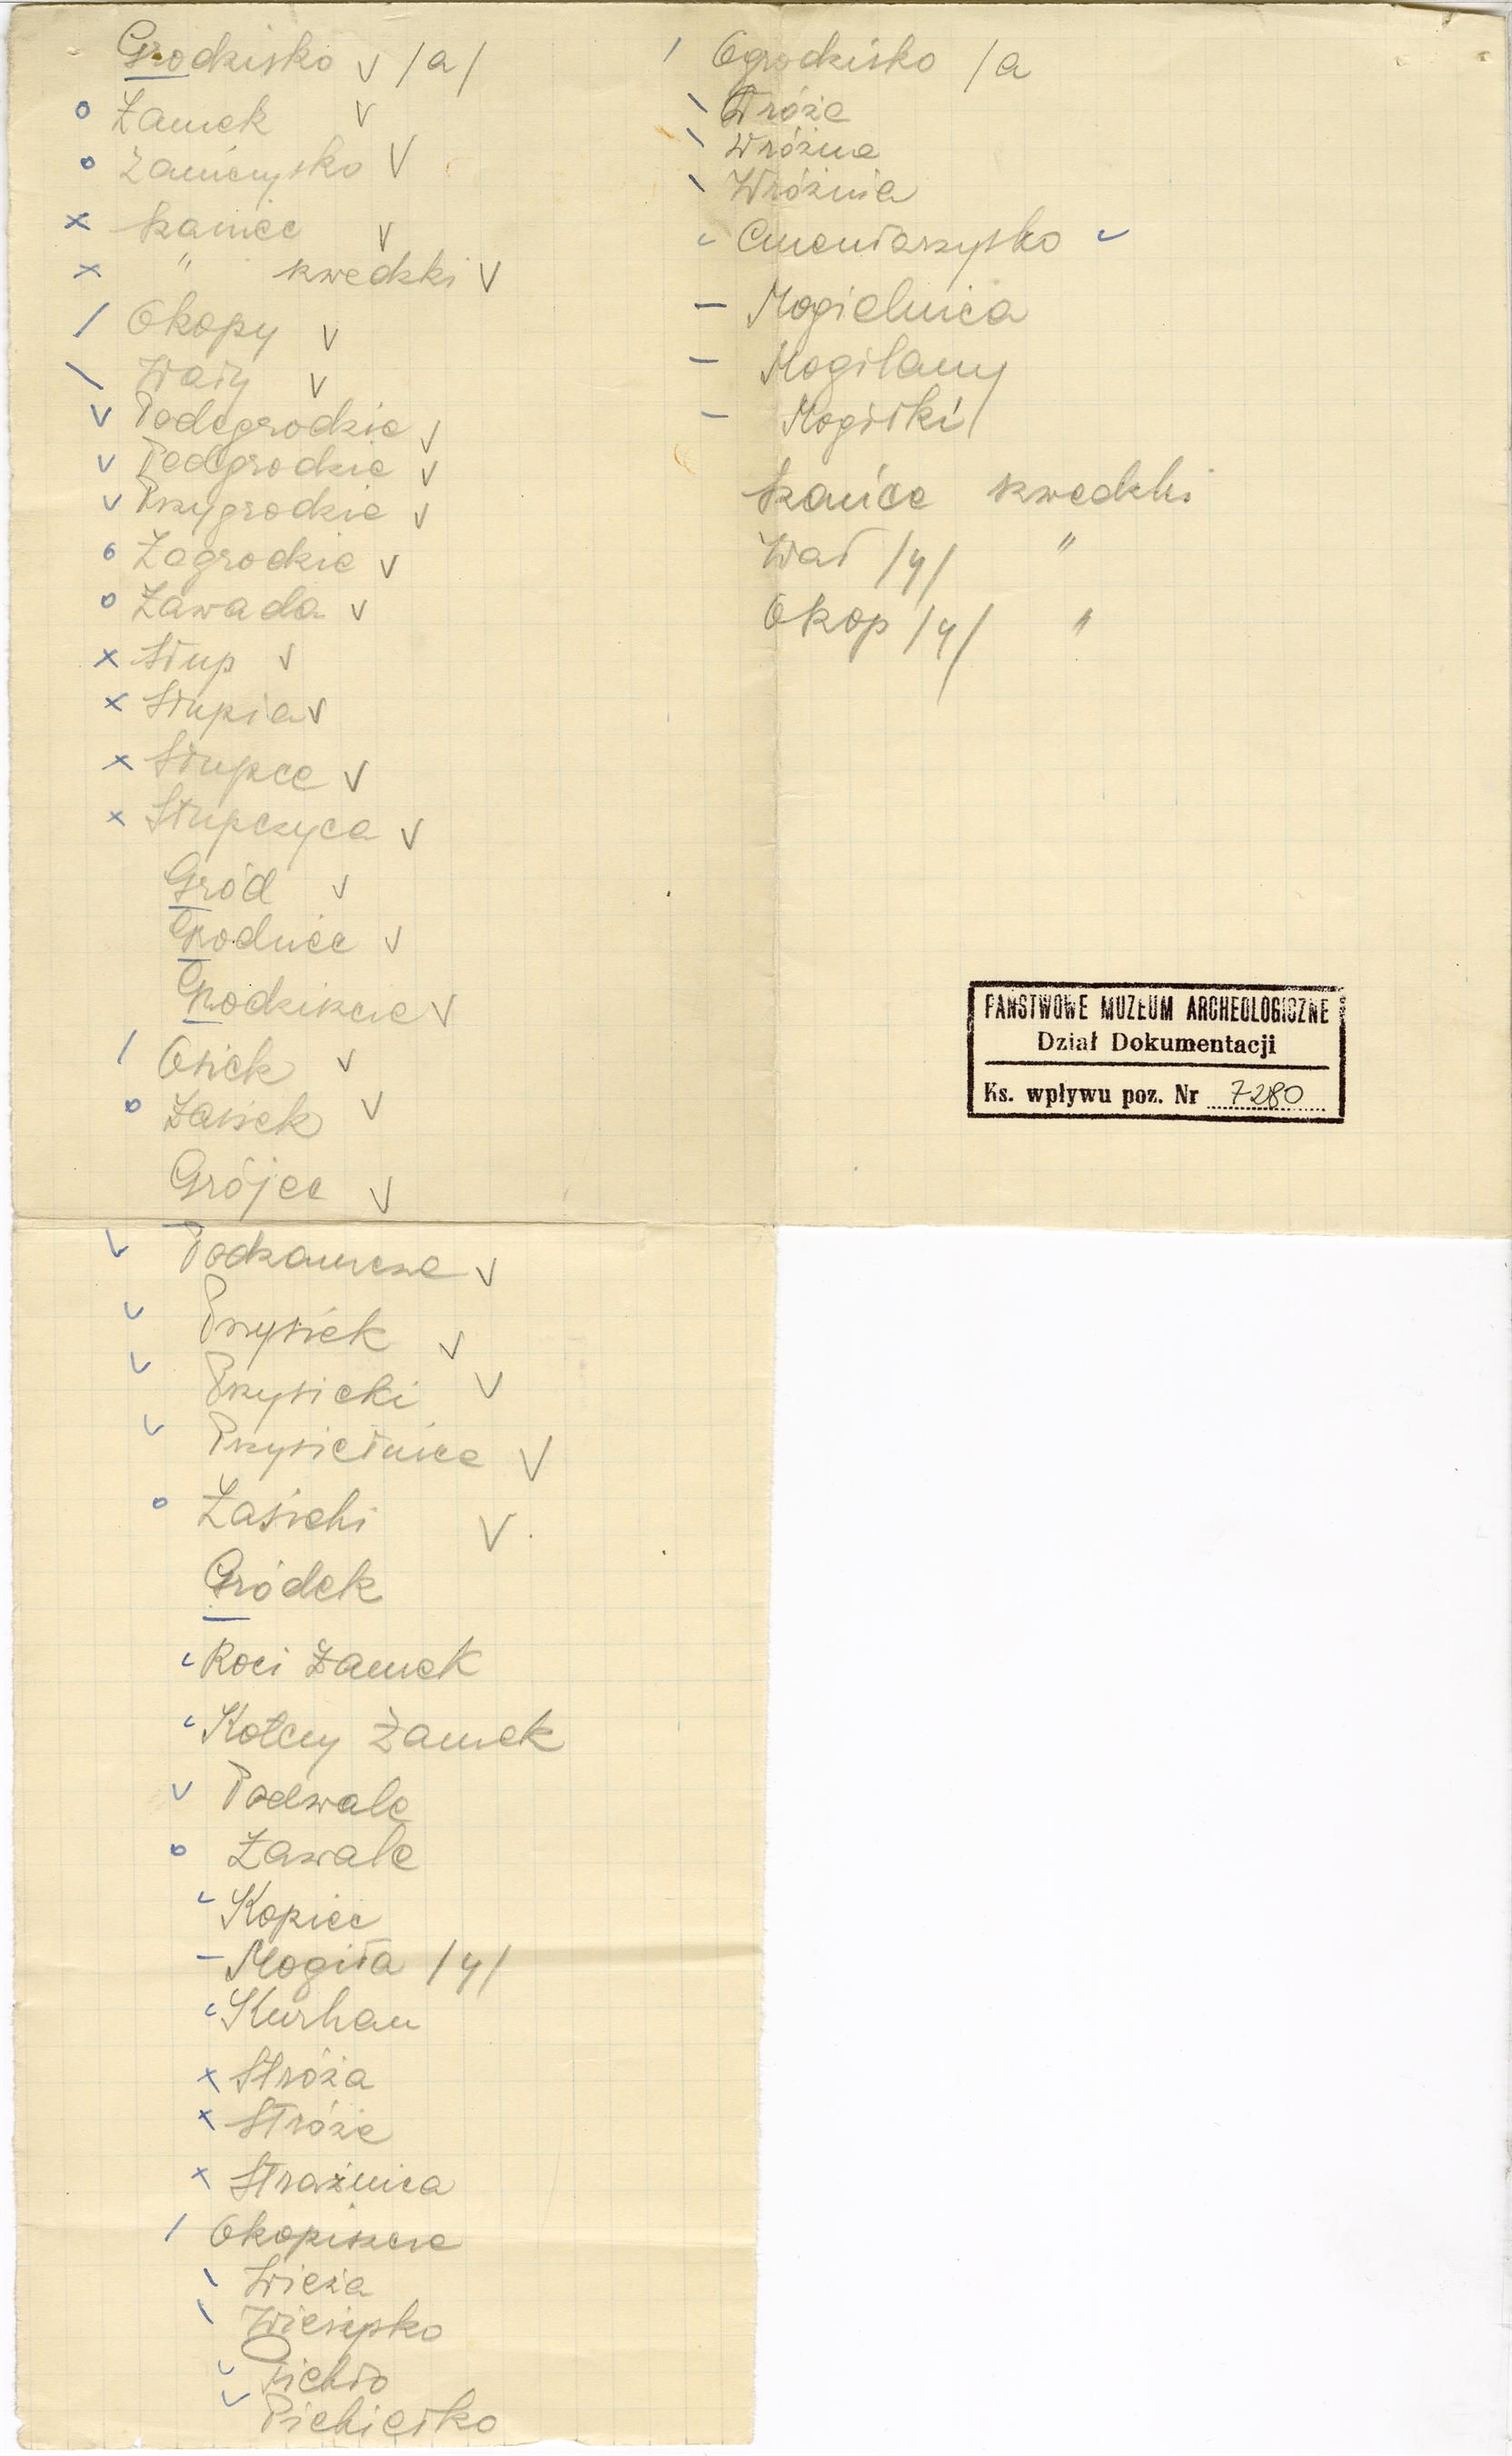 Grodzisko V /a/
Zamek V
Zamczysko V
Szaniec V
" szwedzki V
Okopy V
Wały V
Podegrodzie V
Podgrodzie V
Przygrodzie V
Zagrodzie V
Zawada V
Słup V
Słupia V
Słupce V
Słupczyca V
Gród V
Grodnice V
Grodziszcze V
Osiek V
Zasiek V
Grójec V
Podzamcze V
Przysiek V
Przysieki V
Przysietnica V
Zasieki V
Gródek
Koci Zamek
Kotcy Zamek
Podwale
Zawale
Kopiec
Mogiła /y/
Kurhan
Stróża
Stróże
Strażnica
Okopiszcze
Wieża
Piekło
Piekiełko
Ogrodzisko /a
Wróże
Wróżna
Wróżnia
Cmentarzysko
Mogielnica
Mogilany
Mogiłki
Szańce szwedzki
Wał /y/ "
Okop /y/ "
PAŃSTWOWE MUZEUM ARCHEOLOGICZNE
Dział Dokumentacji
Ks. wpływu poz. Nr 7280